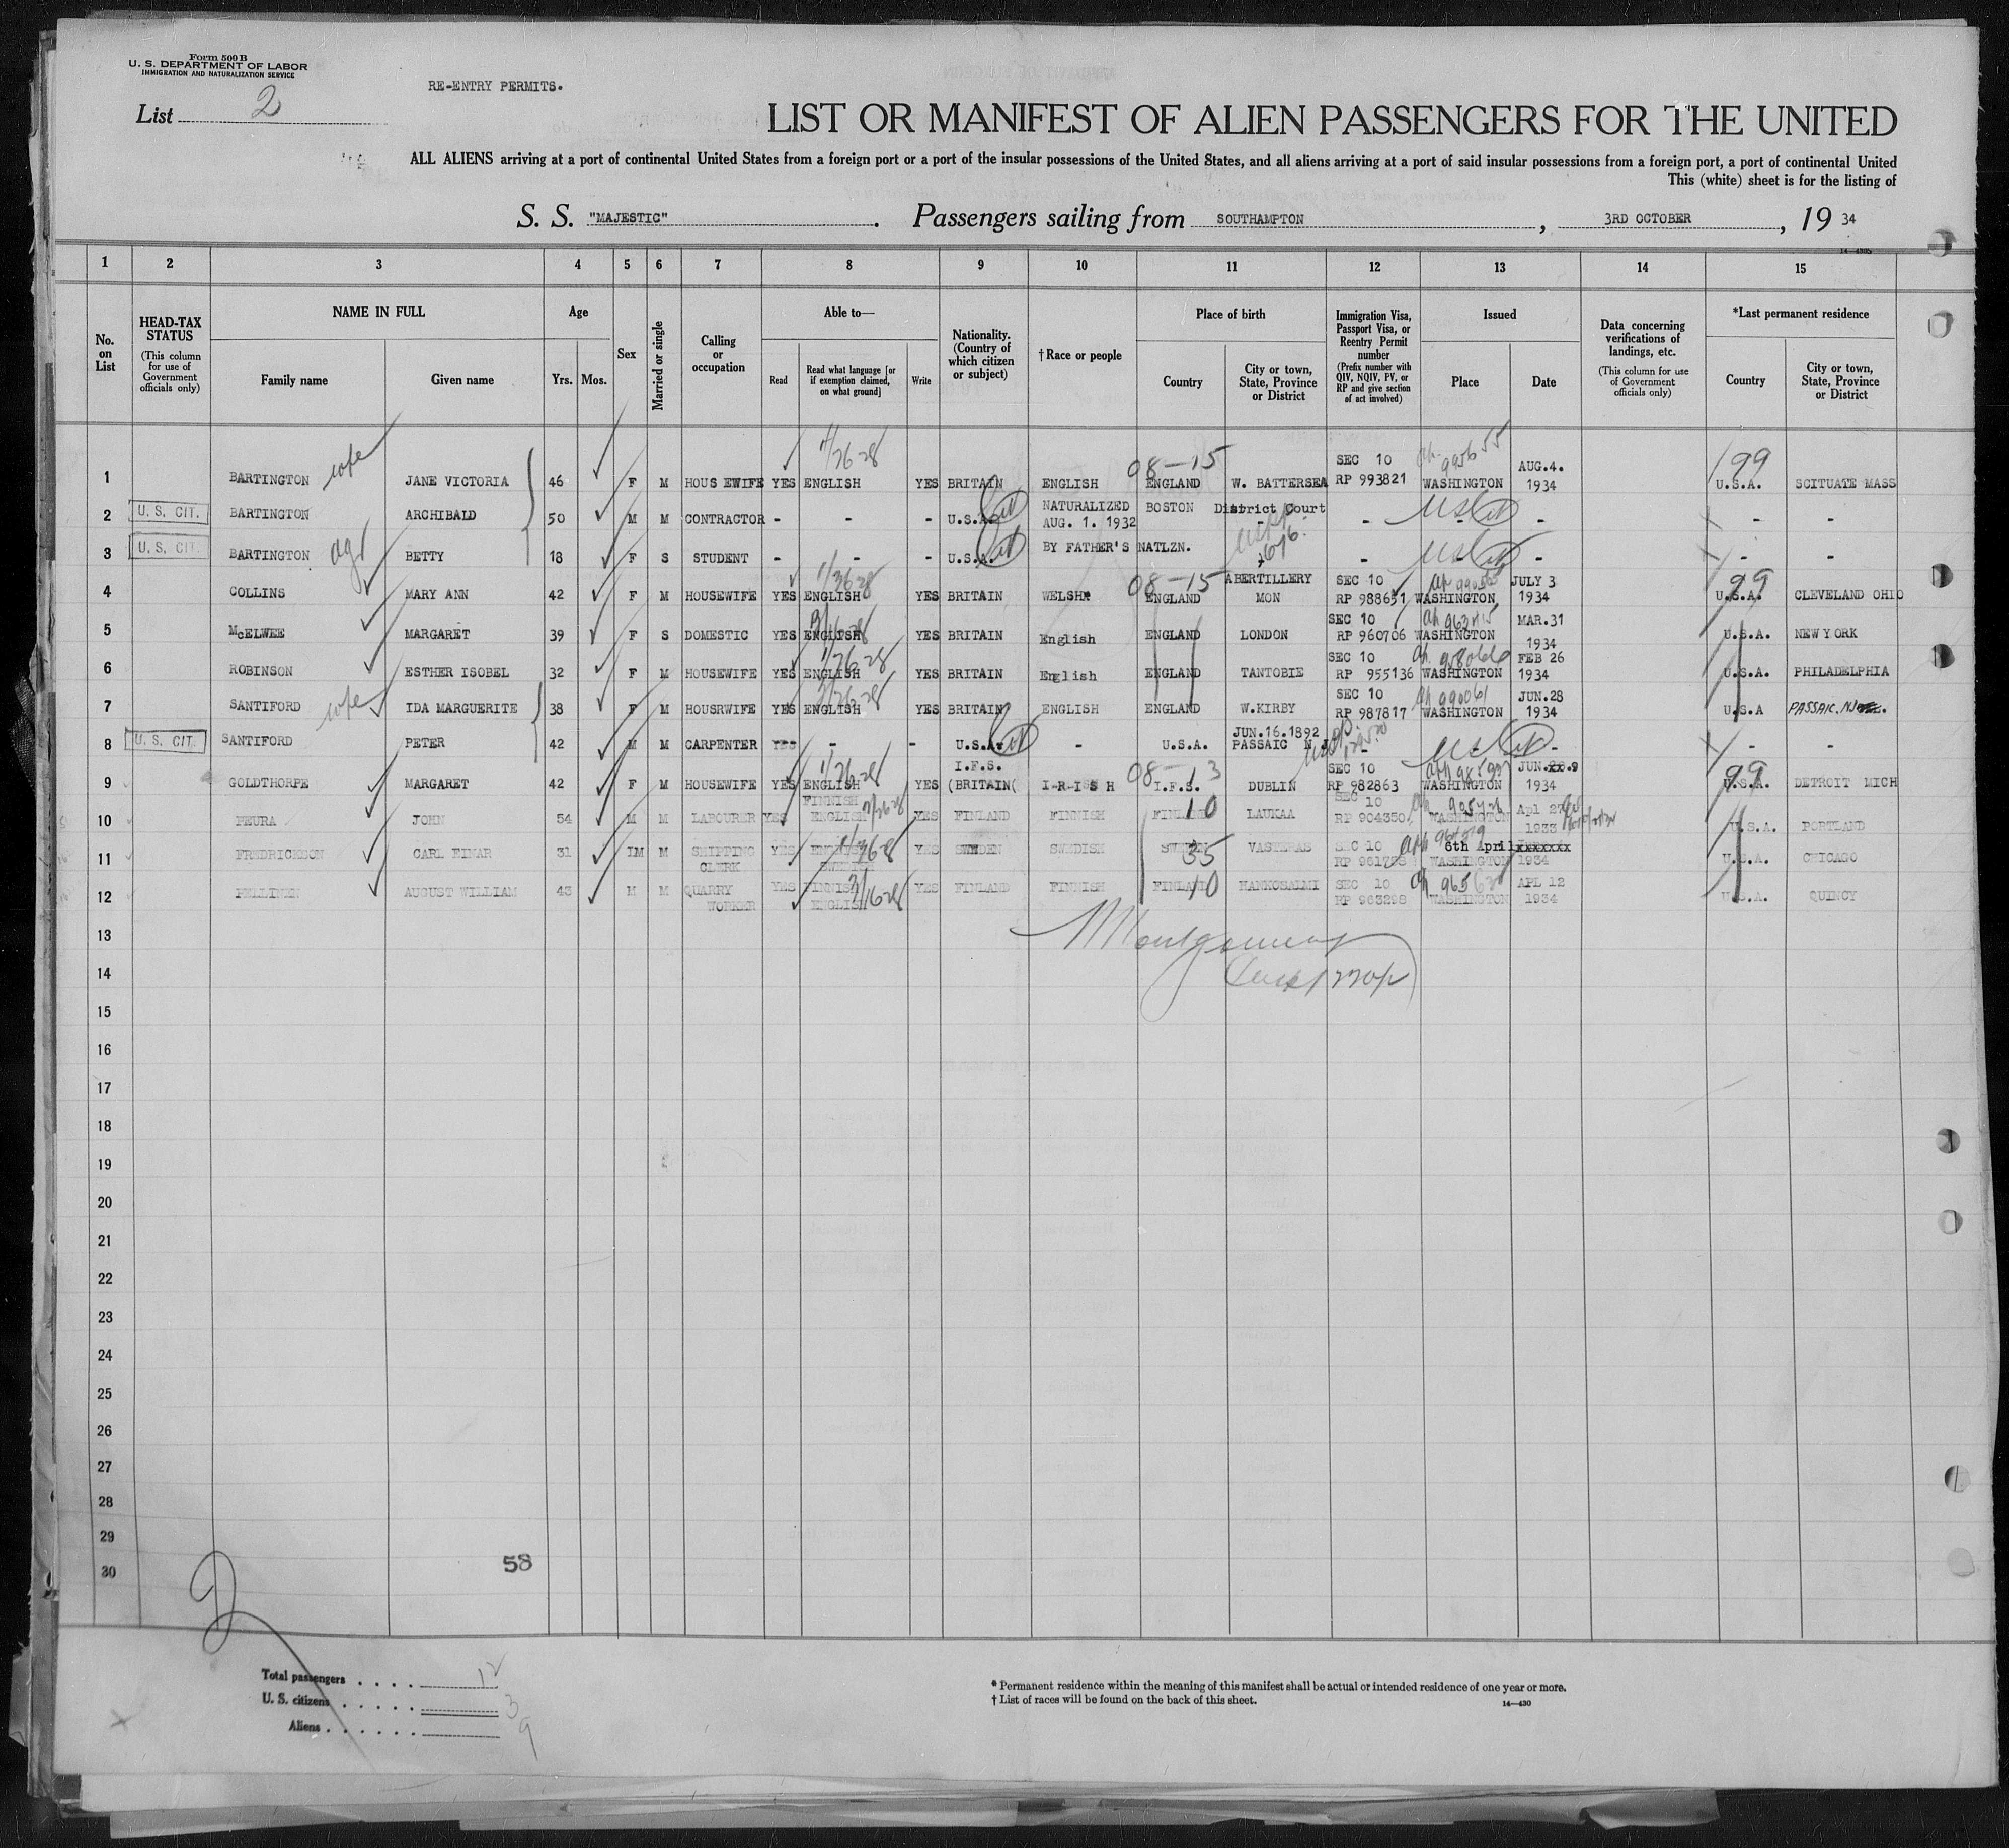 Form 500 B
U. S. DEPARTMENT OF LABOR
IMMIGRATION AND NATURALIZATION SERVICE
RE-ENTRY PERMITS.
List 2
LIST OR MANIFEST OF ALIEN PASSENGERS FOR THE UNITED
ALL ALIENS arriving at a port of continental United States from a foreign port or a port of the insular possessions of the United States, and all aliens arriving at a port of said insular possessions from a foreign port, a port of continental United
This (white) sheet is for the listing of
S. S. "MAJESTIC" . Passengers sailing from SOUTHAMPTON , 3RD OCTOBER , 19 34
1 2 3 4 5 6 7 8 9 10 11 12 13 14 15
No. on List
HEAD-TAX STATUS (This column for use of Government officials only)
NAME IN FULL Family name Given name
Age Yrs. Mos.
Sex
Married or single
Calling or occupation
Able to— Read Read what language [or if exemption claimed, on what ground] Write
Nationality. (Country of which citizen or subject)
† Race or people
Place of birth Country City or town, State, Province or District
Immigration Visa, Passport Visa, or Reentry Permit number (Prefix number with QIV, NQIV, PV, or RP and give section of act involved)
Issued Place Date
Data concerning verifications of landings, etc. (This column for use of Government officials only)
*Last permanent residence Country City or town, State, Province or District
1 BARTINGTON wife JANE VICTORIA 46 F M HOUSEWIFE YES ENGLISH YES BRITAIN ENGLISH 08-15 ENGLAND W. BATTERSEA SEC 10 RP 993821 WASHINGTON AUG.4. 1934 199 U.S.A. SCITUATE MASS
2 U. S. CIT. BARTINGTON ARCHIBALD 50 M M CONTRACTOR - - - U.S.A. NATURALIZED BOSTON District Court AUG. 1. 1932 - - USCit - - -
3 U. S. CIT. BARTINGTON BETTY 18 F S STUDENT - - - U.S.A. BY FATHER'S NATLZN. - USCit - - -
4 COLLINS MARY ANN 42 F M HOUSEWIFE YES ENGLISH YES BRITAIN WELSH 08-15 ENGLAND ABERTILLERY MON SEC 10 RP 988631 WASHINGTON JULY 3 1934 99 U.S.A. CLEVELAND OHIO
5 McELWEE MARGARET 39 F S DOMESTIC YES ENGLISH YES BRITAIN English ENGLAND LONDON SEC 10 RP 960706 WASHINGTON MAR.31 1934 U.S.A. NEW YORK
6 ROBINSON ESTHER ISOBEL 32 F M HOUSEWIFE YES ENGLISH YES BRITAIN English ENGLAND TANTOBIE SEC 10 RP 955136 WASHINGTON FEB 26 1934 U.S.A. PHILADELPHIA
7 SANTIFORD wife IDA MARGUERITE 38 F M HOUSRWIFE YES ENGLISH YES BRITAIN ENGLISH ENGLAND W.KIRBY SEC 10 RP 987817 WASHINGTON JUN.28 1934 U.S.A PASSAIC, NJ
8 U. S. CIT. SANTIFORD PETER 42 M M CARPENTER YES - - U.S.A. - U.S.A. JUN.16.1892 PASSAIC N J - USCit - - -
9 GOLDTHORPE MARGARET 42 F M HOUSEWIFE YES ENGLISH YES I.F.S. (BRITAIN( I-R-I-S H 08-13 I.F.S. DUBLIN SEC 10 RP 982863 WASHINGTON JUN. 9 1934 99 U.S.A. DETROIT MICH
10 PEURA JOHN 54 M M LABOURER YES FINNISH ENGLISH YES FINLAND FINNISH FINLAND 10 LAUKAA SEC 10 RP 904350 WASHINGTON Apl 27 1933 U.S.A. PORTLAND
11 FREDRICKSON CARL EINAR 31 M M SHIPPING CLERK YES ENGLISH SWEDISH YES SWEDEN SWEDISH SWEDEN 35 VASTERAS SEC 10 RP 961258 WASHINGTON 6th April xxxxxxx 1934 U.S.A. CHICAGO
12 PELLINEN AUGUST WILLIAM 43 M M QUARRY WORKER YES FINNISH ENGLISH YES FINLAND FINNISH FINLAND 10 HANKOSALMI SEC 10 RP 963298 WASHINGTON APL 12 1934 U.S.A. QUINCY
13 Montgomery
14
15
16
17
18
19
20
21
22
23
24
25
26
27
28
29
30 58
Total passengers . . . . 12
U. S. citizens . . . . . 3
Aliens . . . . . . 9
* Permanent residence within the meaning of this manifest shall be actual or intended residence of one year or more.
† List of races will be found on the back of this sheet. 14—430